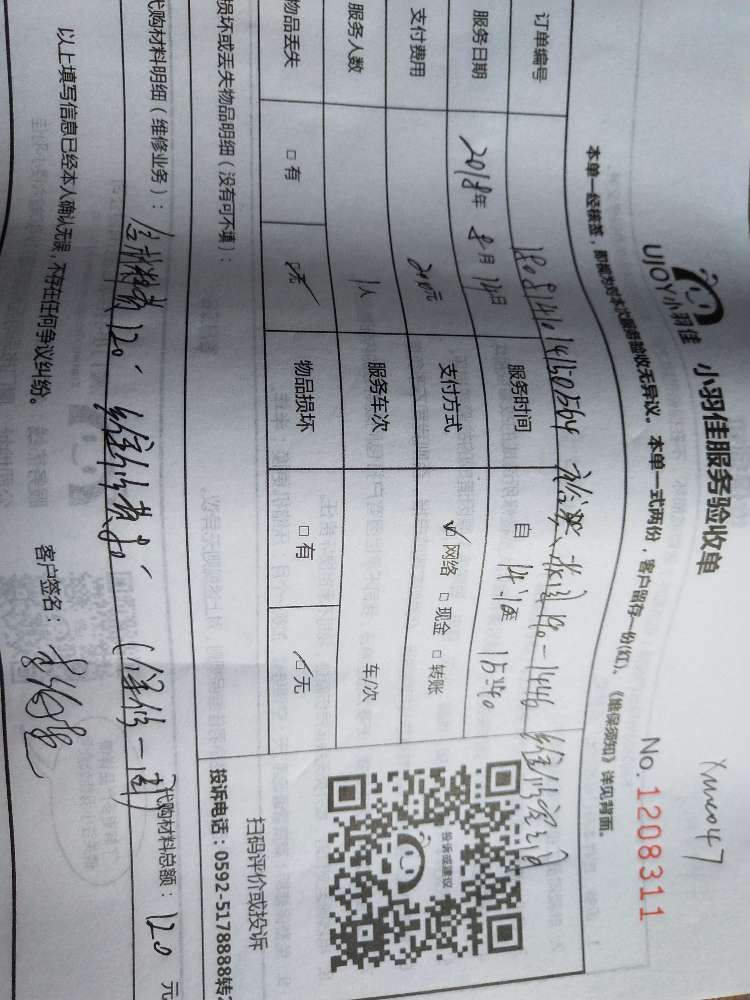 xmco47
UJOY小羽佳 小羽佳服务验收单 No.1208311
本单一经核签，即视为对本次服务验收无异议。本单一式两份，客户留存一份(红)。《维保须知》详见背面。
订单编号 维修
服务日期 2018年 8月 14日 服务时间 自 15:40
支付费用 210元 支付方式 ☑网络 □现金 □转账
服务人数 1人 服务车次 车/次
物品丢失 □有 ☑无 物品损坏 □有 ☑无
投诉或建议
扫码评价或投诉
投诉电话：0592-5178888转2
损坏或丢失物品明细（没有可不填）：
代购材料明细（维修业务）： 120 维修费 90 （保修一周）
代购材料总额： 120 元
以上填写信息已经本人确认无误，不存在任何争议纠纷。 客户签名：